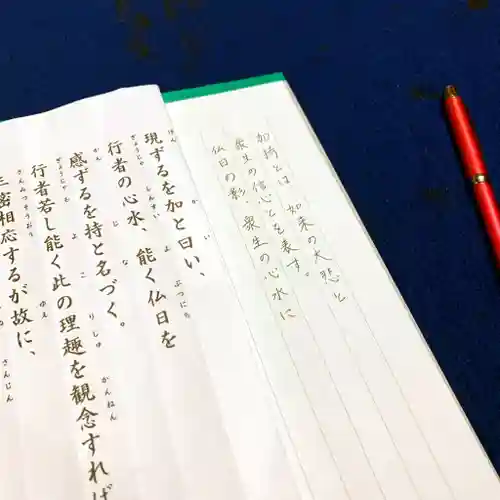 加持とは 如来の大悲と
衆生の信心とを表す。
仏日の影、衆生の心水に
げん か い
現ずるを加と曰い、
ぎょうじゃ しんすい よ ぶつにち
行者の心水、能く仏日を
かん じ な
感ずるを持と名づく。
ぎょうじゃも よ こ りしゅ かんねん
行者若し能く此の理趣を観念すれば
さんみつそうおう ゆえ
三密相応するが故に、
さんじん